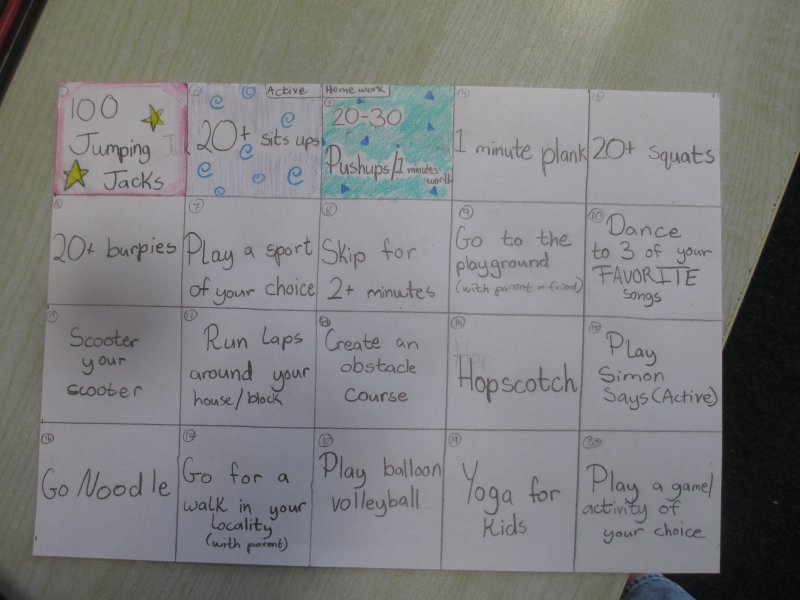 Active Homework
1
100
Jumping
Jacks
2
20+ sits ups
3
20-30
Pushups/1 minutes
worth
4
1 minute plank
5
20+ squats
6
20+ burpies
7
Play a sport
of your choice
8
Skip for
2+ minutes
9
Go to the
playground
(with parent or friend)
10
Dance
to 3 of your
FAVORITE
songs
11
Scooter
your
scooter
12
Run Laps
around your
house/block
13
Create an
obstacle
course
14
Hopscotch
15
Play
Simon
Says (Active)
16
Go Noodle
17
Go for a
walk in your
Locality
(with parent)
18
Play balloon
volleyball
19
Yoga for
Kids
20
Play a game/
activity of
your choice